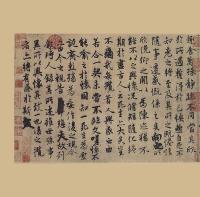 趣舍萬殊靜躁不同當其欣
於所遇蹔得於己怏然自足不
知老之將至及其所之既惓情
隨事遷感慨係之矣向之所
欣俛仰之閒以為陳迹猶不
能不以之興懷況脩短隨化終
期於盡古人云死生亦大矣豈
不痛哉每攬昔人興感之由
若合一契未嘗不臨文嗟悼不
能喻之於懷固知一死生為虛
誕齊彭殤為妄作後之視今
亦由今之視昔悲夫故列
叙時人錄其所述雖世殊事
異所以興懷其致一也後之攬
者亦將有感於斯文